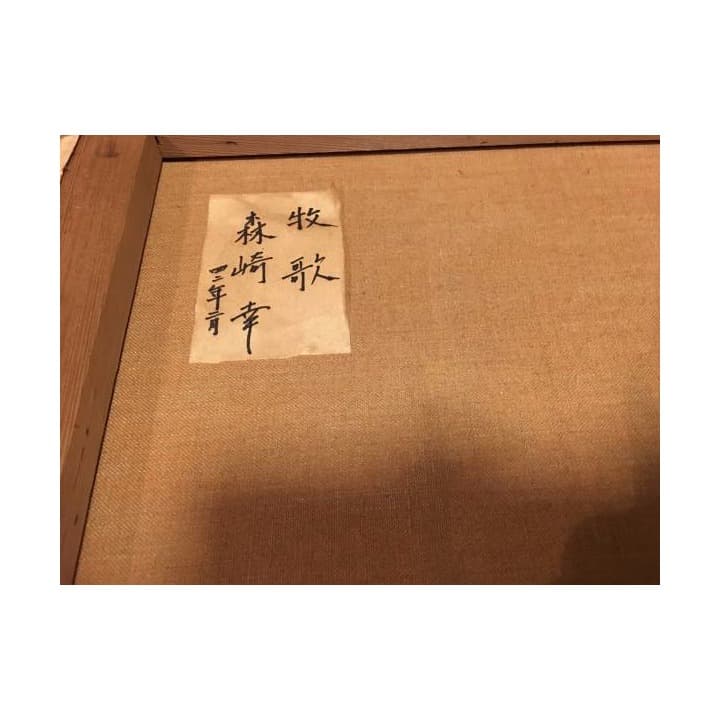 牧歌
森崎幸
四二年二月